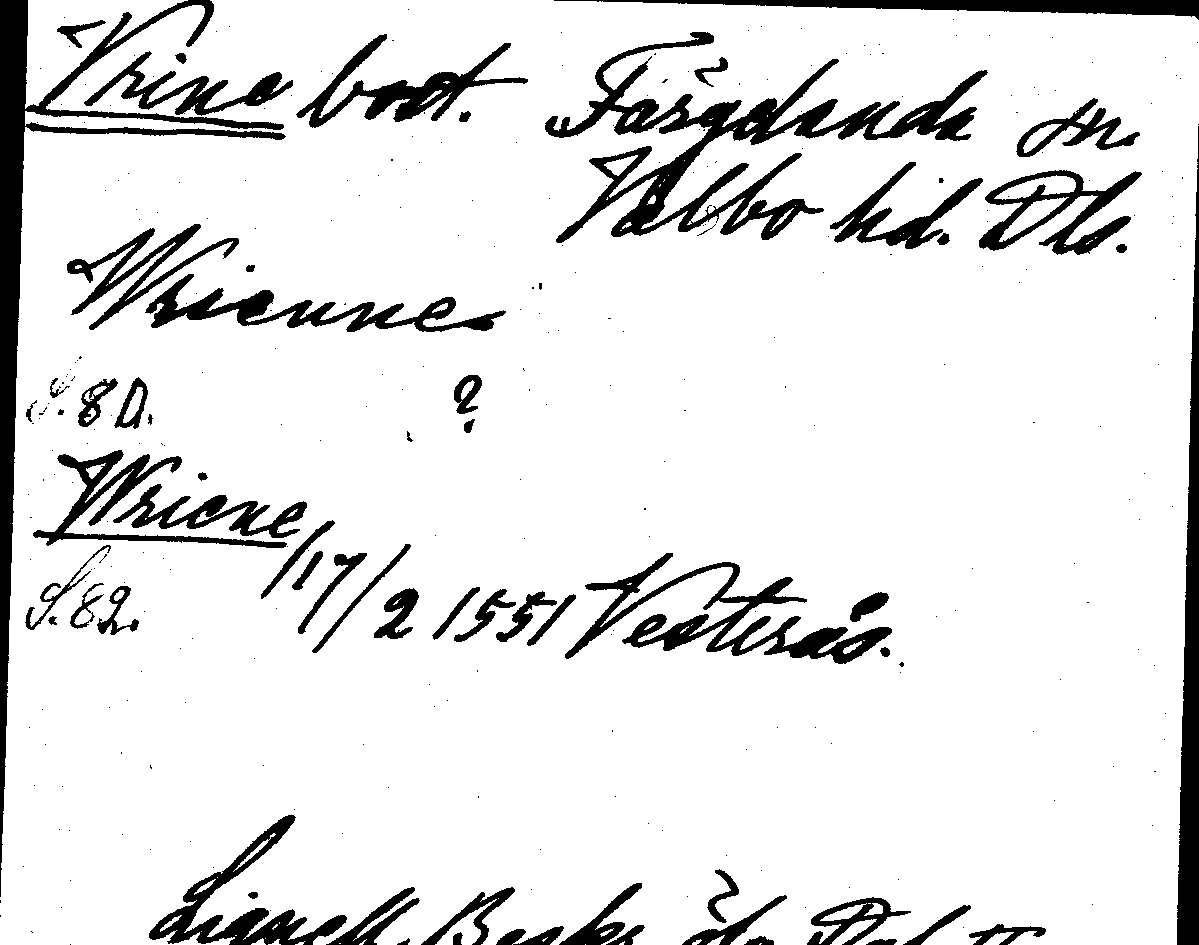 Vrine bost. Färgelanda sn.
Valbo hd. Dls.
Wrienne
S. 8 D. ?
Wriene
S. 82. /17/2 1551 Vesterås.
Lignell, Beskr. öfv. Dal II